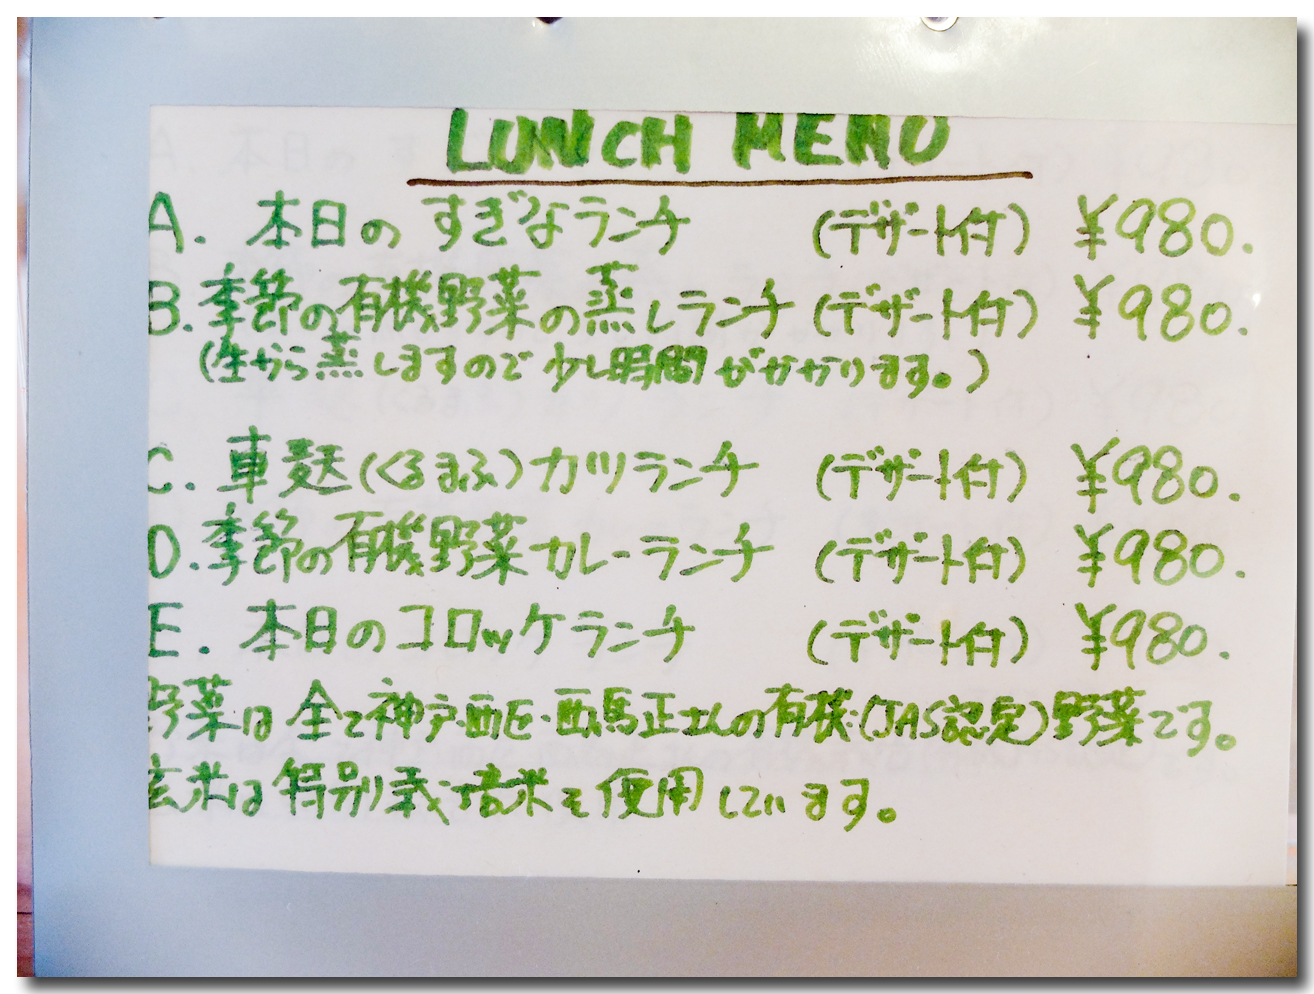 LUNCH MENU
A. 本日の すぎなランチ (デザート付) ¥980.
B.季節の有機野菜の蒸しランチ (デザート付) ¥980.
(生から蒸しますので 少し時間がかかります。)
C. 車麩(くるまふ)カツランチ (デザート付) ¥980.
D.季節の有機野菜カレーランチ (デザート付) ¥980.
E. 本日のコロッケランチ (デザート付) ¥980.
野菜は 全て神戸・西区・西馬正さんの有機(JAS認定)野菜です。
玄米は特別栽培米を使用しています。